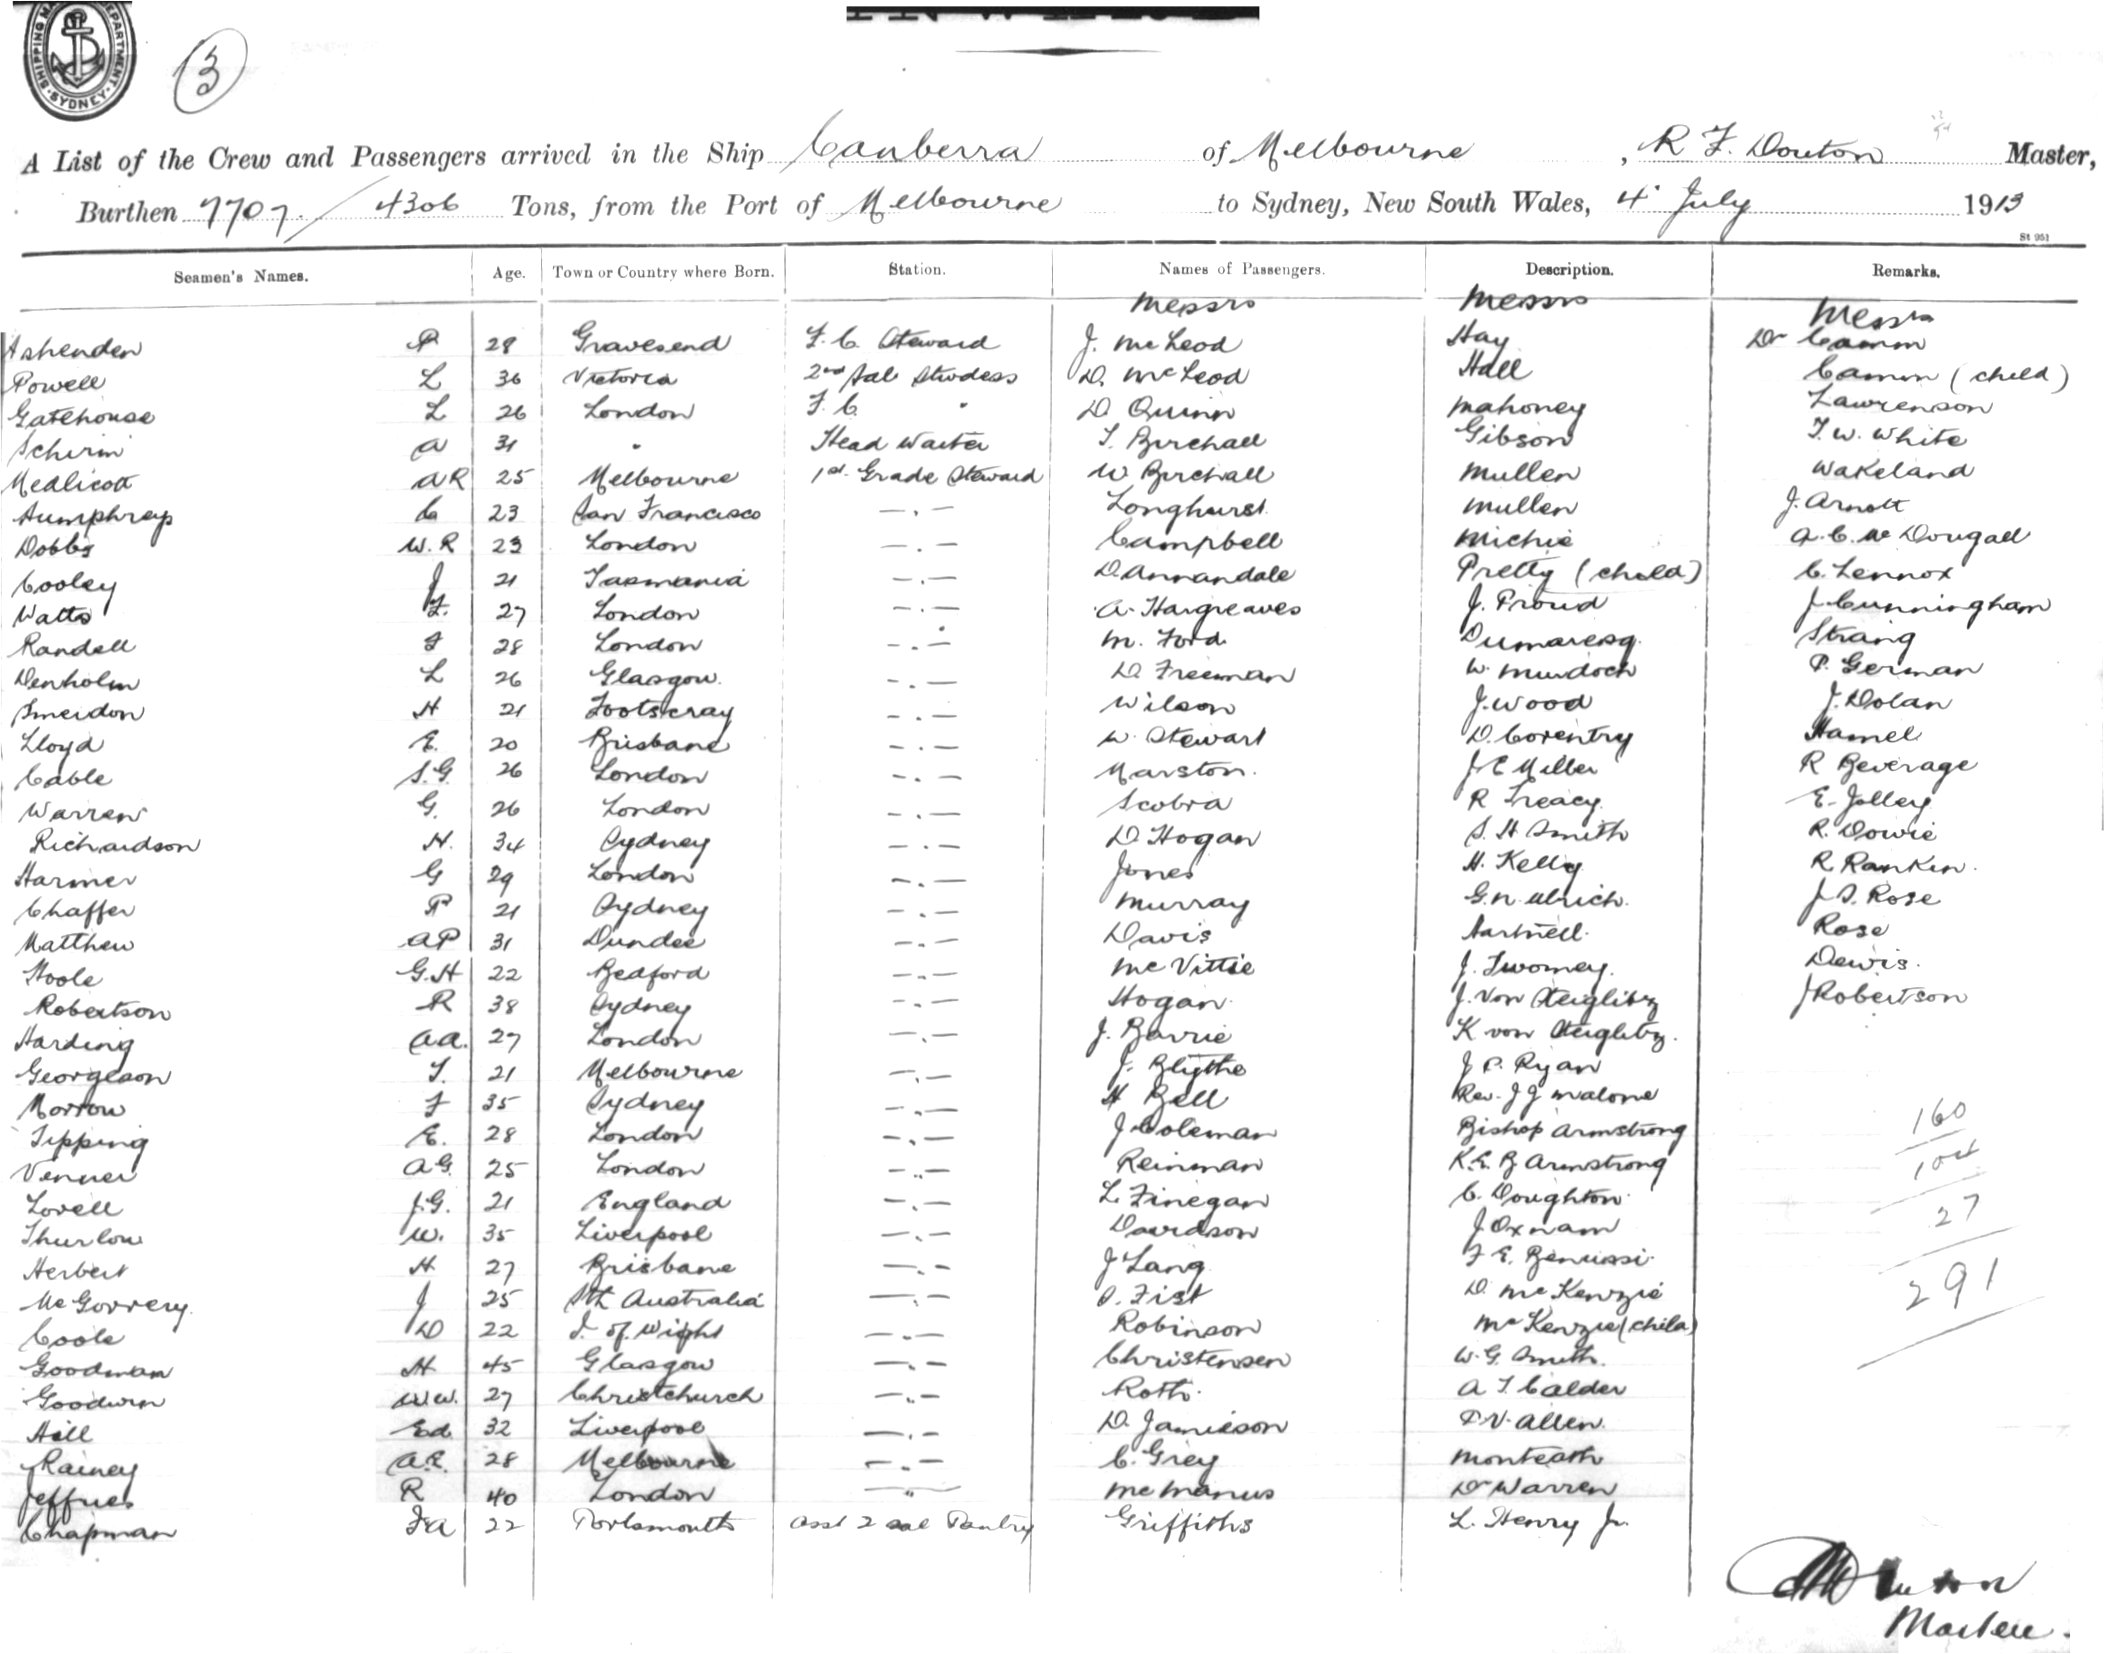 SHIPPING MA DEPARTMENT SYDNEY
3
A List of the Crew and Passengers arrived in the Ship Canberra of Melbourne, R F. Douton Master,
Burthen 7707 / 4306 Tons, from the Port of Melbourne to Sydney, New South Wales, 4 July 1913
St 951
Seamen's Names. Age. Town or Country where Born. Station. Names of Passengers. Description. Remarks.
Messrs Messrs Messrs
Ashenden P 28 Gravesend F. C. Steward J. McLeod Hay Dr Camm
Powell L 36 Victoria 2nd Sal Stwdess D. McLeod Hall Camm (child)
Gatehouse L 26 London F. C. " D. Quinn Mahoney Lawrenson
Schirm A 31 " Head Waiter T. Birchall Gibson T. W. White
Medlicott A R 25 Melbourne 1st Grade Steward W Birchall Mullen Wakeland
Humphreys C 23 San Francisco — . — Longhurst Mullen J. Arnott
Dobbs W. R 23 London — . — Campbell Michie A. C. Mc Dougall
Cooley J 21 Tasmania — . — D. Annandale Pretty (child) C. Lennox
Watts F. 27 London — . — A. Hargreaves J. Proud J Cunningham
Randell F 28 London — . — M. Ford Dumaresq Strang
Denholm L 26 Glasgow. — . — D. Freeman W. Murdoch P. German
Smerdon H 21 Footscray — . — Wilson J. Wood J. Dolan
Lloyd E. 20 Brisbane — . — W. Stewart D. Coventry Hamel
Cable S. G. 26 London — . — Marston. J E Miller R Beverage
Warren G. 26 London — . — Scobra R Treacy. E. Jolley
Richardson H. 34 Sydney — . — D Hogan S. H Smith R. Dowie
Harmer G 29 London — . — Jones H. Kelly R Rankin.
Chaffer P 21 Sydney — . — Murray G. N. Ulrich. J S. Rose
Matthew A P 31 Dundee — . — Davis Hartnell. Rose
Hoole G. H 22 Bedford — . — Mc Vittie J. Twomey. Dewis.
Robertson R 38 Sydney — . — Hogan. J. Von Steiglitz J Robertson
Harding A A. 27 London — . — J. Barrie K von Steiglitz.
Georgeson T. 21 Melbourne — . — J. Blythe J P. Ryan
Morrow F 35 Sydney — . — H Bell Rev. J J Malone
Tipping E. 28 London — . — J Coleman Bishop Armstrong 160
Venner A G. 25 London — . — Reinman K. E. B Armstrong 104
Lovell J. G. 21 England — . — L. Finegan C. Doughton. 27
Thurlow W. 35 Liverpool — . — Davidson J. Oxnam
Herbert H 27 Brisbane — . — J Lang F E. Benussi. 291
Mc Gorrery. J 25 Sth Australia — . — S. Fist D. Mc Kenzie
Coole D 22 I. of. Wight — . — Robinson Mc Kenzie (child)
Goodman H 45 Glasgow — . — Christensen W. G. Smith.
Goodwin W. W. 27 Christchurch — . — Roth. A T. Calder
Hill Ed 32 Liverpool — . — D. Jamieson P. V. Allen.
Rainey A. E. 28 Melbourne — . — C. Grey Monteath
Jeffries R 40 London — " — Mc Manus Dr Warren
Chapman F A 22 Portsmouth Asst 2 Sal Pantry Griffiths L. Henry Jr.
Master.